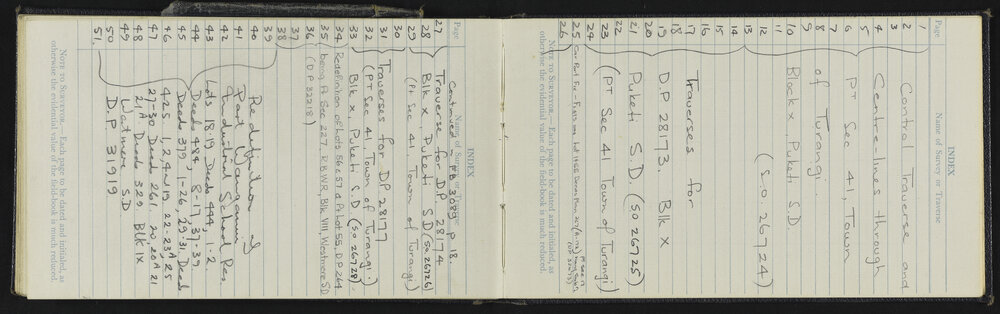 INDEX
Page Name of Survey or Traverse
1
2 Control Traverse and
3
4 Centrelines through
5
6 Pt Sec 41, Town
7
8 of Turangi
9
10 Block X, Puketi S.D.
11
12 (S.O. 26724)
13
14
15
16
17 Traverses for
18
19 D.P 28173. Blk X
20
21 Puketi S.D. (SO 26725)
22
23 (PT Sec 41 Town of Turangi)
24
25
26
NOTE TO SURVEYOR.— Each page to be dated and initialed, as
otherwise the evidential value of the field-book is much reduced.
INDEX
Page Name of Survey or Traverse
Continued in FB 3089 p 18.
27 Traverse for D.P. 28174
28 Blk X Puketi S.D (SO 26726)
29 (Pt Sec 41, Town of Turangi)
30
31 Traverses for DP 28177
32 (PT Sec 41, Town of Turangi.)
33 Blk X, Puketi S.D (SO 26728)
34 Redefinition of Lots 56 & 57 & Pt Lot 55, D.P. 264
35 being Pt Sec 227, R.B.W.R, Blk VIII, Westmere S.D
36 (D.P. 32218)
37
38
39
40 Redefinition of
41 Part Wanganui
42 Industrial School Res.
43 Lots 18, 19 Deeds 444, 1-2
44 Deeds 484, 8-17, 37-39
45 Deeds 379, 1-26, 29-31 Deed
46 425 1, 2, 4, 19 22-23, A 25
47 27-30 Deed 261. 20, 20A 21
48 21A Deeds 329 Blk IX
49 Waitmere S.D
50 D.P. 31919
51.
NOTE TO SURVEYOR.— Each page to be dated and initialed, as
otherwise the evidential value of the field-book is much reduced.